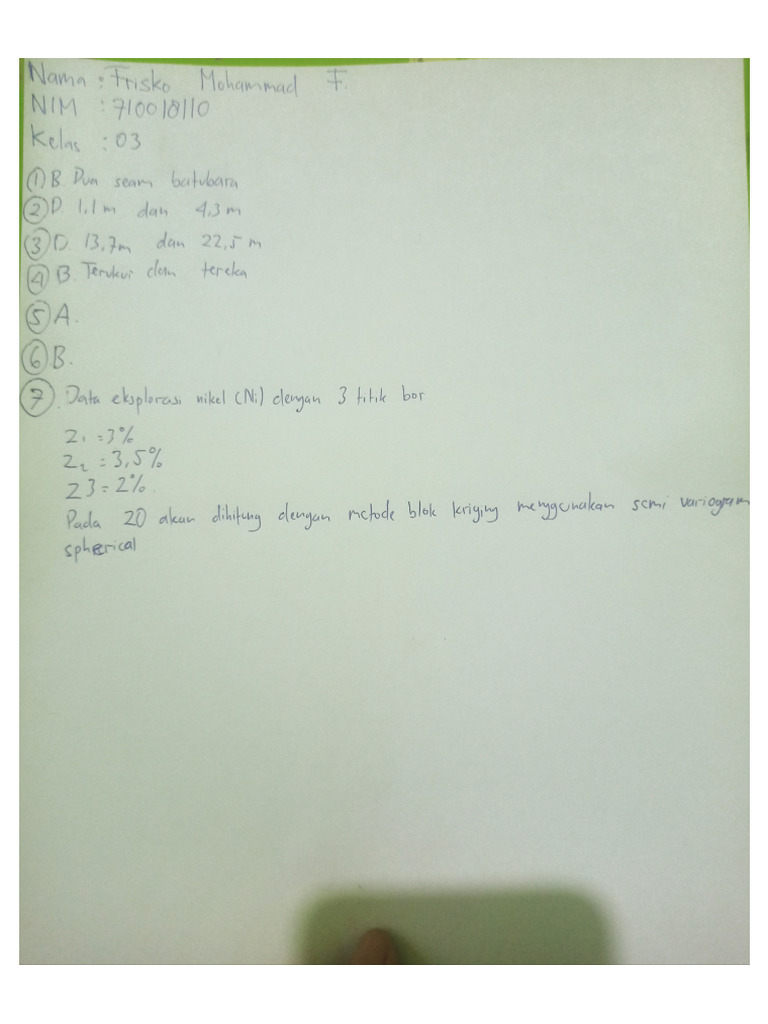 Nama : Frisko Mohammad F.
NIM : 710018110
Kelas : 03
① B. Dua seam batubara
② D. 1,1 m dan 4,3 m
③ D. 13,7m dan 22,5 m
④ B. Terukur dan tereka
⑤ A.
⑥ B.
⑦. Data eksplorasi nikel (Ni) dengan 3 titik bor
Z1 = 3%
Z2 = 3,5%
Z3 = 2%.
Pada Z0 akan dihitung dengan metode blok kriging menggunakan semi variogram
spherical